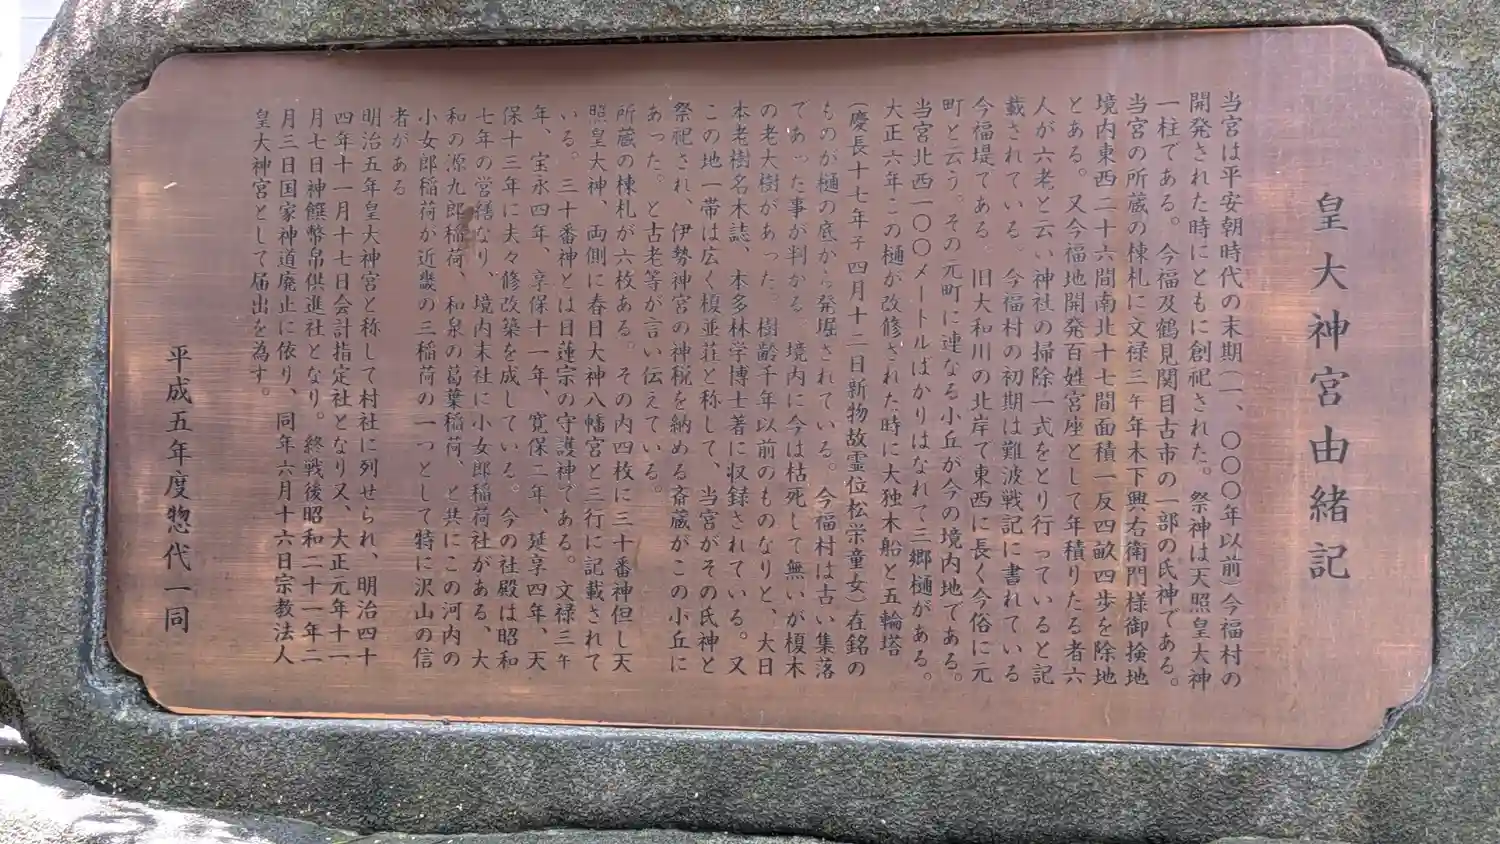 皇大神宮由緒記
当宮は平安朝時代の末期(一、〇〇〇年以前)今福村の
開発された時にともに創祀された。祭神は天照皇大神
一柱である。今福及鶴見関目古市の一部の氏神である。
当宮の所蔵の棟札に文禄三午年木下興右衛門様御検地
境内東西二十六間南北十七間面積一反四畝四歩を除地
とある。又今福地開発百姓宮座として年積りたる者六
人が六老と云い神社の掃除一式をとり行っていると記
載されている 今福村の初期は難波戦記に書れている
今福堤てある。旧大和川の北岸て東西に長く今俗に元
町と云う。その元町に連なる小丘が今の境内地である。
当宮北西一〇〇メートルばかりはなれて三郷樋がある。
大正六年この樋が改修された時に大独木船と五輪塔
(慶長十七年子四月十二日新物故霊位松栄童女)在銘の
ものが樋の底から発堀されている。今福村は古い集落
であった事が判かる。境内に今は枯死して無いが榎木
の老大樹があった。樹齢千年以前のものなりと、大日
本老樹名木誌、本多林学博士著に収録されている。又
この地一帯は広く榎並荘と称して、当宮がその氏神と
祭祀され、伊勢神宮の神税を納める斎蔵がこの小丘に
あった。と古老等が言い伝えている。
所蔵の棟札が六枚ある。その内四枚に三十番神但し天
照皇大神、両側に春日大神八幡宮と三行に記載されて
いる。三十番神とは日蓮宗の守護神である。文禄三午
年、宝永四年、享保十一年、寛保二年、延享四年、天
保十三年に夫々修改築を成している。今の社殿は昭和
七年の営繕なり、境内末社に小女郎稲荷社がある、大
和の源九郎稲荷、和泉の葛葉稲荷、と共にこの河内の
小女郎稲荷が近畿の三稲荷の一つとして特に沢山の信
者がある
明治五年皇大神宮と称して村社に列せられ、明治四十
四年十一月十七日会計指定社となり又、大正元年十一
月七日神饌幣帛供進社となり。終戦後昭和二十一年二
月三日国家神道廃止に依り、同年六月十六日宗教法人
皇大神宮として届出を為す。
平成五年度惣代一同